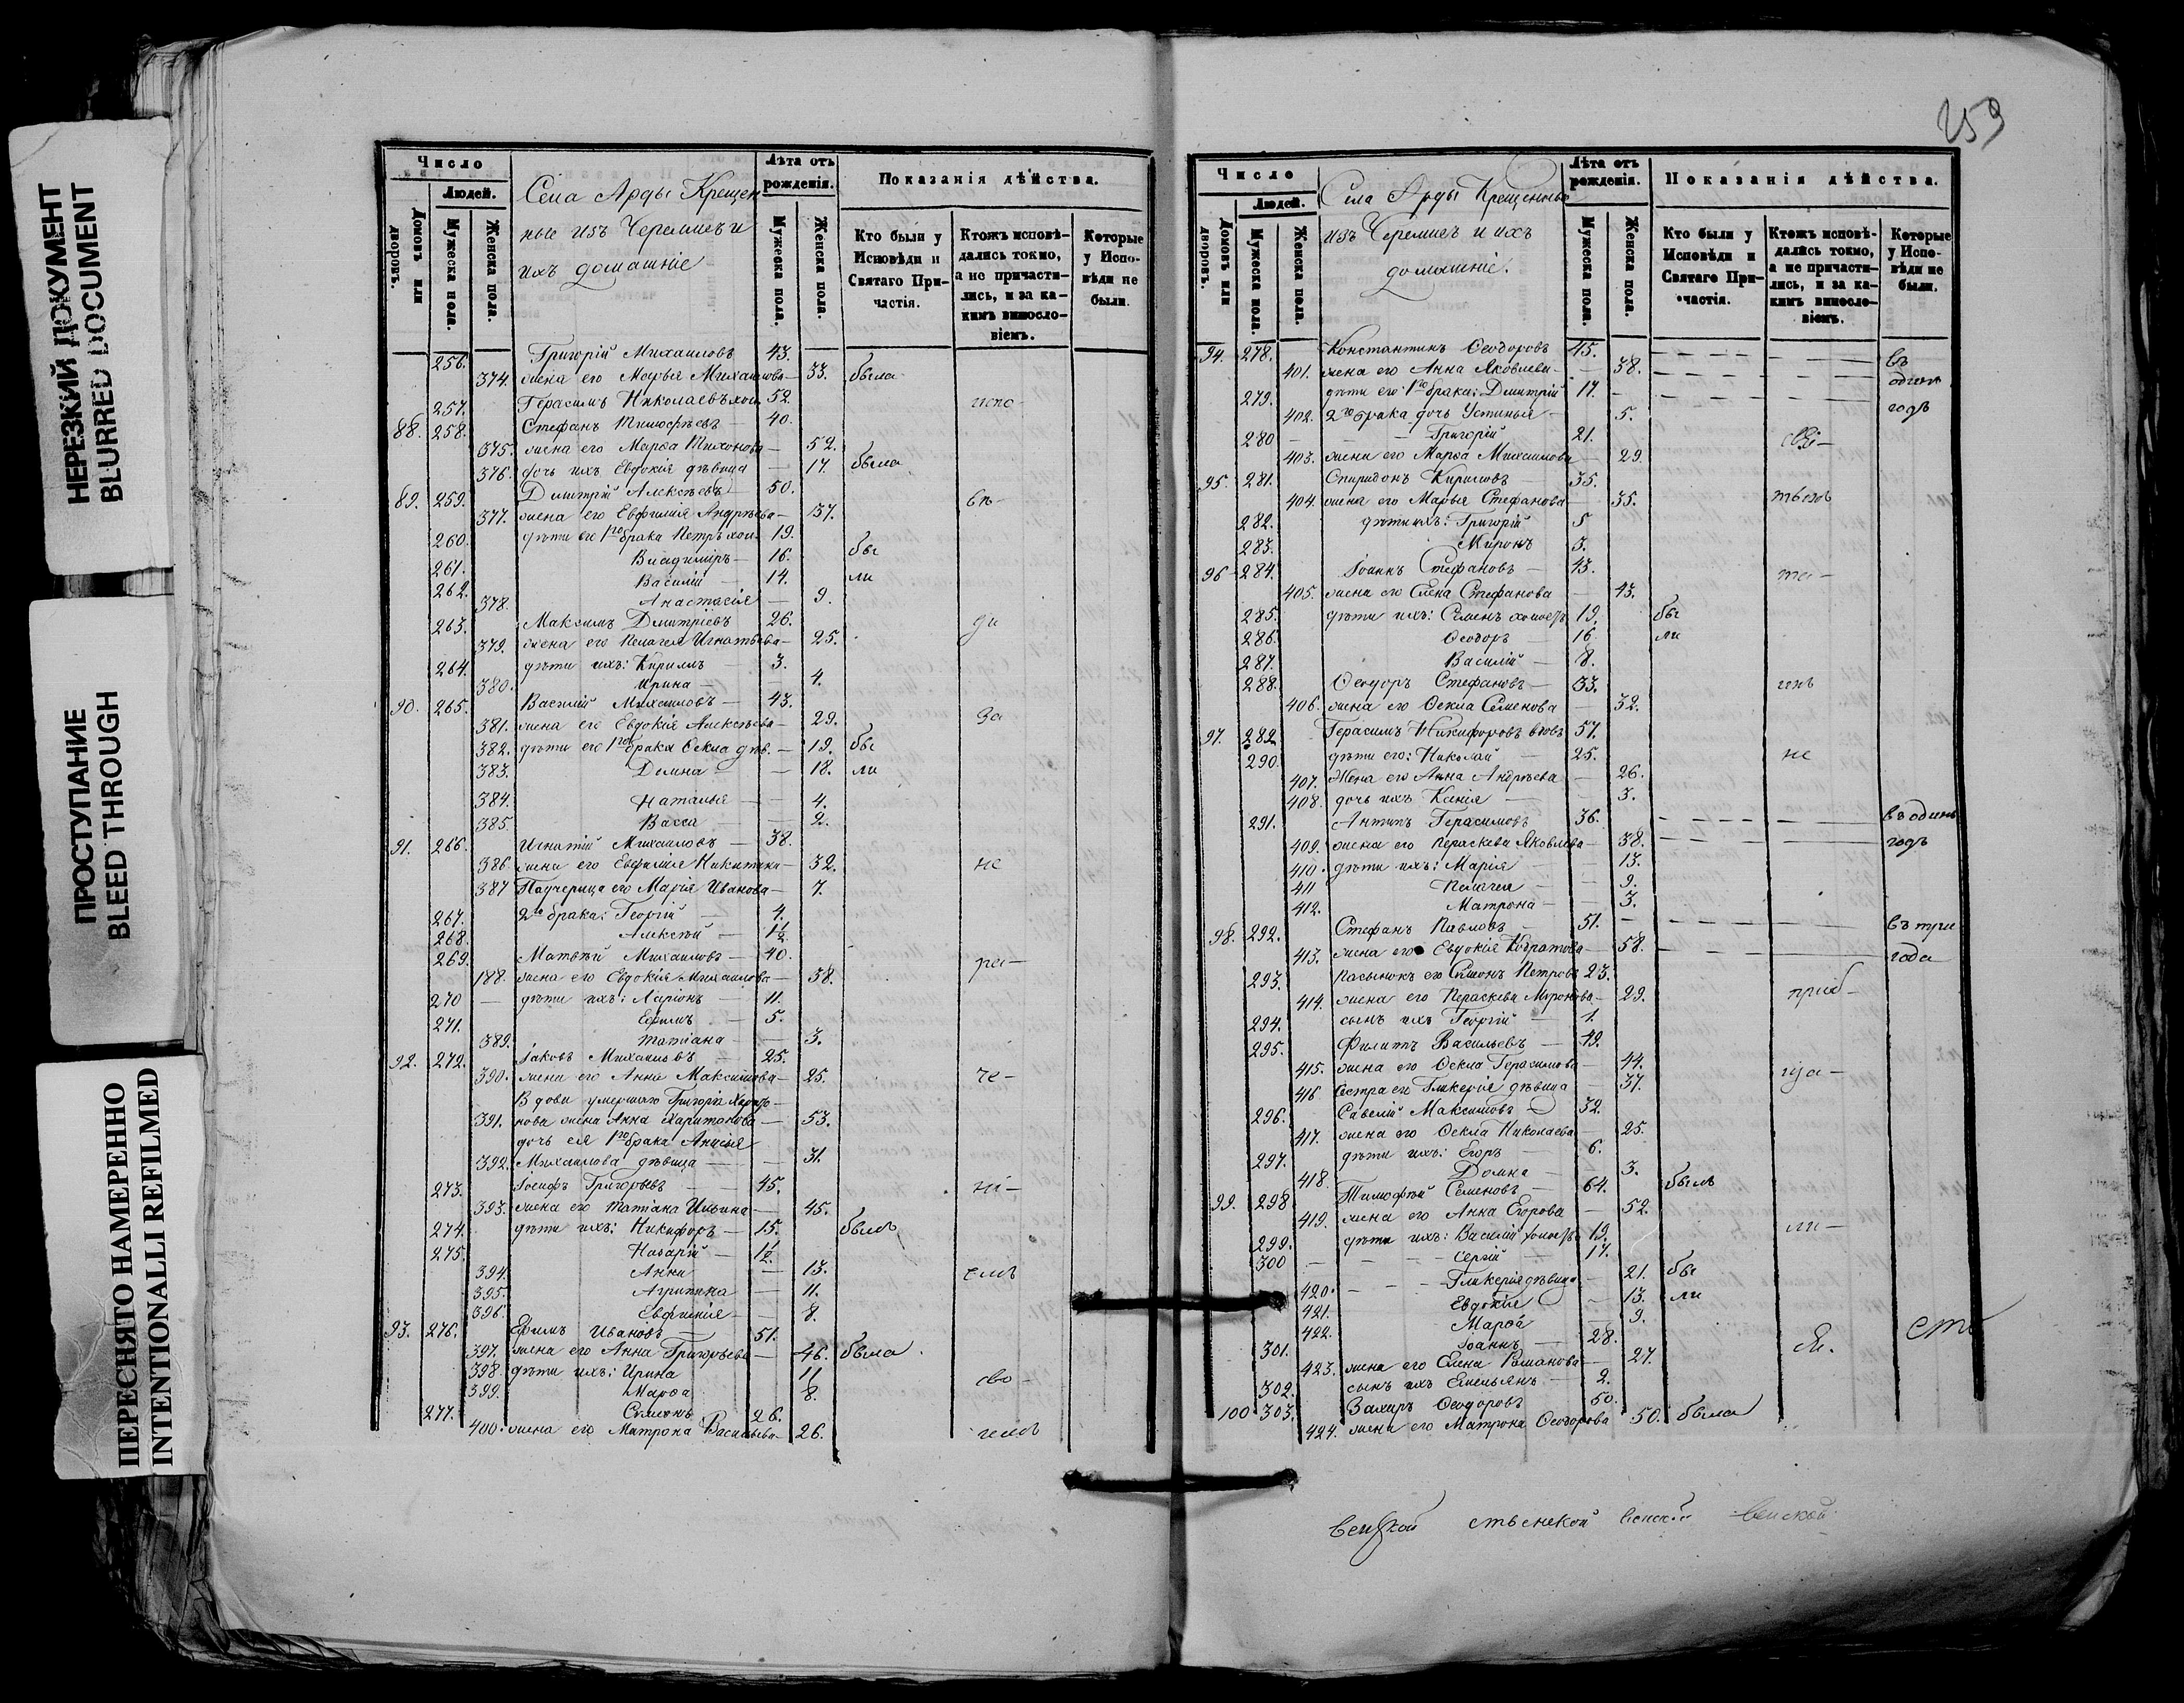 НЕРЕЗКИЙ ДОКУМЕНТ
BLURRED DOCUMENT
ПРОСТУПАНИЕ
BLEED THROUGH
ПЕРЕСНЯТО НАМЕРЕННО
INTENTIONALLI REFILMED
Число
Людей.
Домовъ или дворовъ.
Мужеска пола.
Женска пола.
Села Арды Крещен
ные изъ Черемисъ и
ихъ домашніе
Лѣта отъ рожденія.
Мужеска пола.
Женска пола.
Показанія дѣйства.
Кто были у Исповѣди и Святаго Причастія.
Ктожъ исповѣдались токмо, а не причастились, и за какимъ винословіемъ.
Которые у Исповѣди не были.
256. Григорій Михаиловъ 43.
374 жена его Марья Михаилова 33. была
257. Герасимъ Николаевъ хол. 52. испо-
88. 258. Стефанъ Тимофѣевъ 40.
375. жена его Марѳа Тихонова 52.
376. дочь ихъ Евдокія дѣвица 17. была
89. 259. Дмитрій Алексѣевъ 50. вѣ-
377. жена его Евфимія Андрѣева 37.
260. дѣти его 1го брака Петръ хол. 19.
261. Владиміръ 16. бы
262. Василій 14. ли
378. Анастасія 9.
263. Максимъ Дмитріевъ 26. ди
379. жена его Пелагея Игнатьева 25.
264. дѣти ихъ: Кирилъ 3.
380. Ирина 4.
90. 265. Василій Михаиловъ 43. за
381. жена его Евдокія Алексѣева 29.
382. дѣти его 1го брака Ѳекла дѣв. 19. бы
383. Домна 18. ли
384. Наталья 4.
385. Васса 2.
91. 266. Игнатій Михаиловъ 38.
386 жена его Евфимія Никитина 32. не
387 Падчерица его Марія Иванова 7.
267. 2го брака: Георгій 4.
268. Алексѣй 1½
269. Матвѣй Михаиловъ 40. ра-
188. жена его Евдокія Михаилова 38.
270 дѣти ихъ: Ларіонъ 11.
271. Ефимъ 5.
389. Татіана 3.
92. 272. Іаковъ Михаиловъ 25.
390. жена его Анна Максимова 25. че-
Вдова умершаго Григорія Харито-
391. нова жена Анна Харитонова 53.
дочь ея 1го брака Анисья
392. Михаилова дѣвица 31.
273. Іосифъ Григорьевъ 45. ні-
393. жена его Татіана Ильина 45.
274. дѣти ихъ: Никифоръ 15. былъ
275. Назарій 1½
394. Анна 13. емъ
395. Агрипина 11.
396. Евфимія 8.
93. 276. Ефимъ Ивановъ 51.
397. жена его Анна Григорьева 46. была
398. дѣти ихъ: Ирина 11 сво-
399. Марѳа 8.
277. Симеонъ 26.
400. жена его Матрона Васильева 26.
259
Число
Людей.
Домовъ или дворовъ.
Мужеска пола.
Женска пола.
Села Арды Крещенные
изъ Черемисъ и ихъ
домашніе.
Лѣта отъ рожденія.
Мужеска пола.
Женска пола.
Показанія дѣйства.
Кто были у Исповѣди и Святаго Причастія.
Ктожъ исповѣдались токмо, а не причастились, и за какимъ винословіемъ.
Которые у Исповѣди не были.
94. 278. Константинъ Ѳеодоровъ 45. въ
401. жена его Анна Яковлева 38. одинъ
279. дѣти его 1го брака: Дмитрій 17. годъ
402. 2го брака дочь Устинья 5.
280 Григорій 21.
403. жена его Марѳа Михаилова 29.
95. 281. Спиридонъ Кириловъ 35.
404. жена его Марья Стефанова 35.
282. дѣти ихъ: Григорій 5
283. Миронъ 3.
96 284. Іоаннъ Стефановъ 43.
405. жена его Елена Стефанова 43.
285. дѣти ихъ: Семенъ холостъ 19. бы
286. Ѳеодоръ 16 ли
287. Василій 8.
288. Ѳеодоръ Стефановъ 33.
406. жена его Ѳекла Семенова 32.
97. 289. Герасимъ Никифоровъ вдовъ 57.
290. дѣти его: Николай 25. не
407. Жена его Анна Андрѣева 26.
408. дочь ихъ Ксенія 3.
291. Антипъ Герасимовъ 36. въ одинъ
409. жена его Пераскева Яковлева 38. годъ
410. дѣти ихъ: Марія 13.
411 Пелагея 9.
412. Матрона 3.
98. 292. Стефанъ Павловъ 51. въ три
413. жена его Евдокія 58. года
293. пасынокъ его Симеонъ Петровъ 23.
414. жена его Пераскева Миронова 29. приоб-
294. сынъ ихъ Георгій 1.
295. Филипъ Васильевъ 49.
415. жена его Ѳекла Герасимова 44.
416 Сестра его Гликерія дѣвица 37. ща-
296. Савелій Максимовъ 32.
417. жена его Ѳекла Николаева 25.
297. дѣти ихъ: Егоръ 6.
418. Домна 3.
99. 298 Тимофѣй Семеновъ 64. былъ
419. жена его Анна Егорова 52.
299. дѣти ихъ: Василій холостъ 19. ли-
300 Сергій 17.
420. Гликерія дѣвица 21. бы
421. Евдокія 13. ли
422. Марѳа 9.
301. Іоаннъ 28. ся.
423. жена его Елена Романова 27.
302. сынъ ихъ Емельянъ 2.
100 303. Захаръ Ѳеодоровъ 50.
424. жена его Матрона Ѳеодорова 50. была